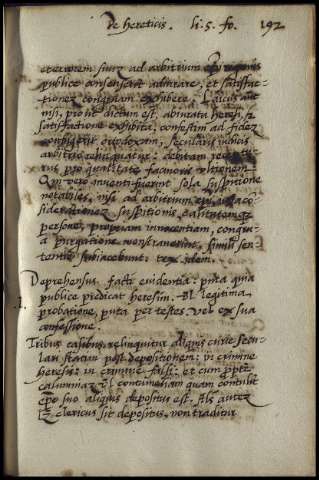 de hereticis. li. 5. fo. 192
errorem suum ad arbitrium epi regionis
publice consenserit abiurare, et satisfac-
tionem congruam exhibere. Laicus aut
nisi, prout dictum est, abiurata heresi, et
satisfactione exhibita, confestim ad fidem
orthodoxam, secularis iudicis
arbitrio relinquatur: debitam
rus pro qualitate facinoris ultionem.
Qui vero inventi fuerint sola suspitione
notabiles, nisi ad arbitrium epi iuxta co
siderationem suspitionis, qualitatemq
persone, propriam innocentiam, congru-
a purgatione monstraverint, simili sen
tentie subiacebunt: tex. idem.
Deprehensus. facti evidentia: puta quia
publice predicat heresim. Vl legitima
probatione, puta per testes. Vel ex sua
confessione.
Tribus casibus relinquitur aliquis curie secu
lari statim post depositionem: in crimine
heresis: in crimine falsi: et cum ppter
calumniam vl contumeliam quam contulit
epo suo aliquis depositus est. Als autem
clericus sit depositus, non traditur